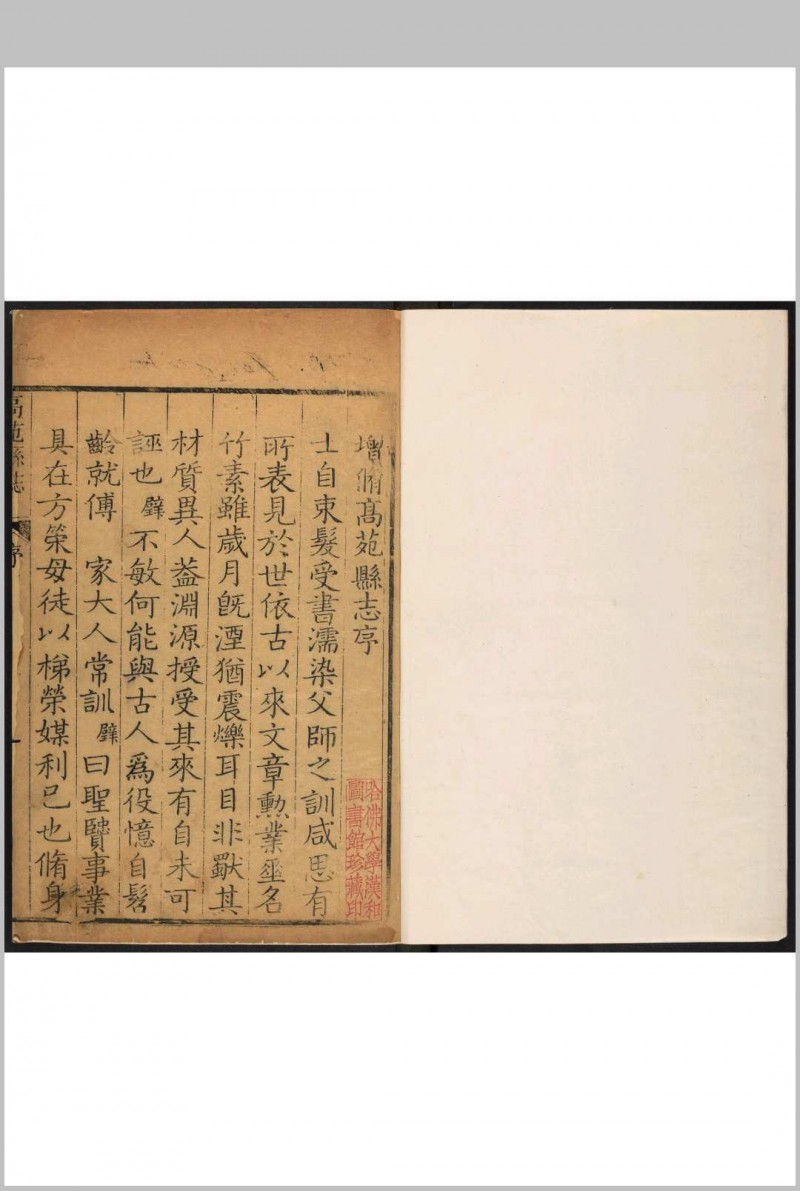 增脩高苑縣志序
士自束髮受書濡染父師之訓咸思有
所表見於世依古以來文章勲業垂名
竹素雖歲月既湮猶震爍耳目非獸其
材質異人葢淵源授受其來有自未可
誣也 不敏何能與古人爲役憶自髫
齡就傅 家大人常訓 曰聖贒事業
具在方策毋徒以梯榮媒利已也脩身
高苑縣志 序
哈佛大學漢和
圖書館珍藏印